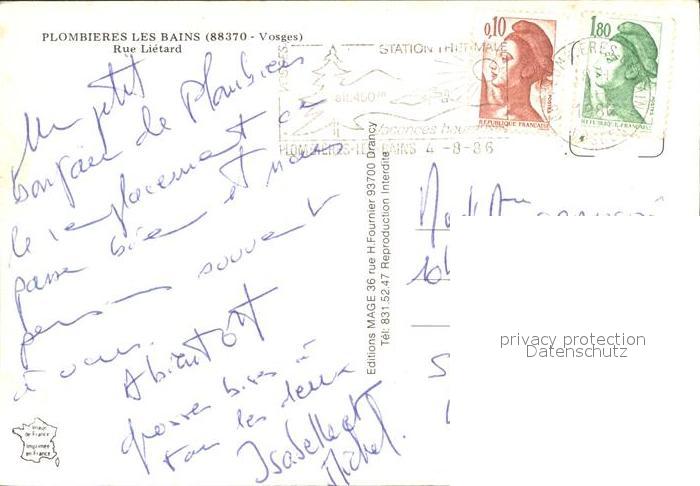 PLOMBIERES LES BAINS (88370 - Vosges)
Rue Liétard
VOSGES
STATION THERMALE
alt. 450 m
PLOMBIERES-LES-BAINS 4 -8-86
0,10
REPUBLIQUE FRANÇAISE
1,80
REPUBLIQUE FRANÇAISE
Un petit
bonjour de Plombières
le remplacement ce
passe bien et nous
pensons souvent
à vous.
Abientôt
grosses bises à
tous les deux
Isabelle et
Michel.
Editions MAGE 36 rue H.Fournier 93700 Drancy
Tél: 831.52.47 Reproduction Interdite
Image
de France
Imprimée
en France
privacy protection
Datenschutz